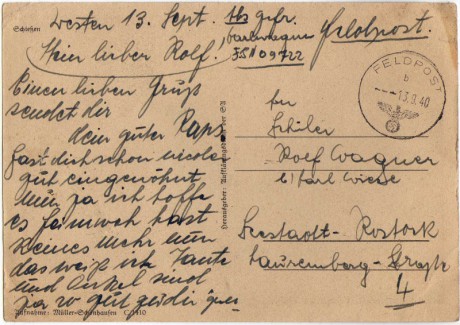 Schießen
Westen 13. Sept.
gefr.
Feldpost.
Mein lieber Rolf!
09722
FELDPOST
b
13.9.40
Einen lieben Gruß
sendet dir
Mein guter Paps
Hast dich schon wieder
gut eingewöhnt
nun ja ich hoffe
es Jamweh hast
keines mehr nun
das weiß ich Tante
und Onkel sind
ja so gut zu dir
An
Schüler
Rolf Wagner
b/ Karl Wiese
Seestadt - Rostock
Lauremberg - Straße
4
Aufnahme: Müller-Schönhausen C 1410